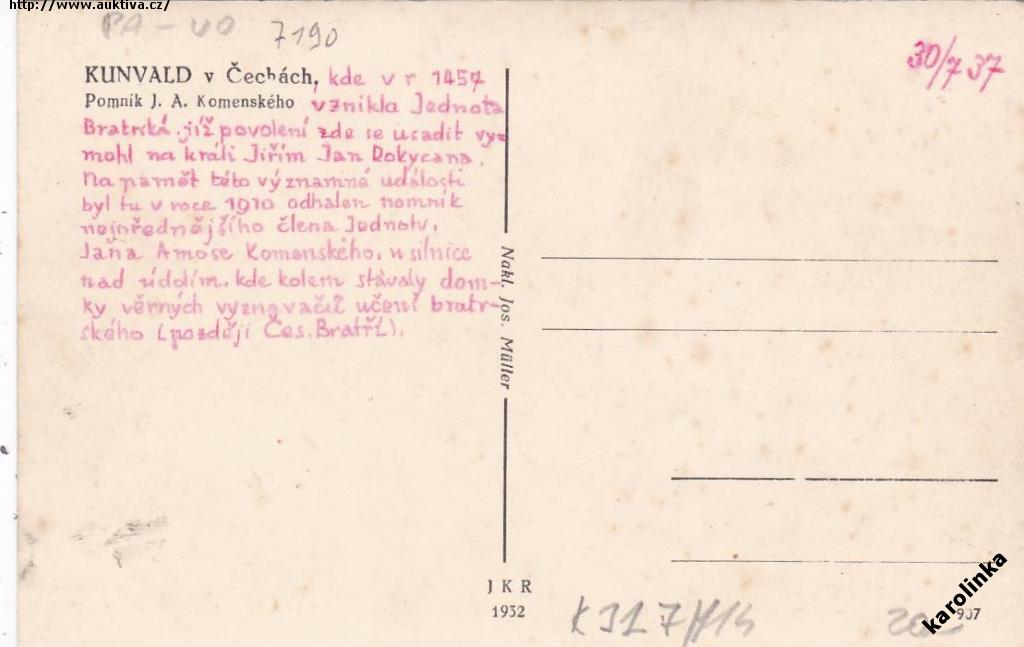 http://www.auktiva.cz/
PA-UO 7190
30/7 37
KUNVALD v Čechách, kde v r 1457
Pomník J. A. Komenského vznikla Jednota
Bratrská. jíž povolení zde se usadit vy-
mohl na králi Jiřím Jan Rokycana.
Na pamět této významné události
byl tu v roce 1910 odhalen pomník
nejpřednějšího člena Jednoty,
Jana Amose Komenského, u silnice
nad údolím, kde kolem stávaly dom-
ky věrných vyznavačů učení bratr-
ského (později Čes. Bratří).
Nakl. Jos. Müller
JKR
1932
K 317/H14
907
karolinka